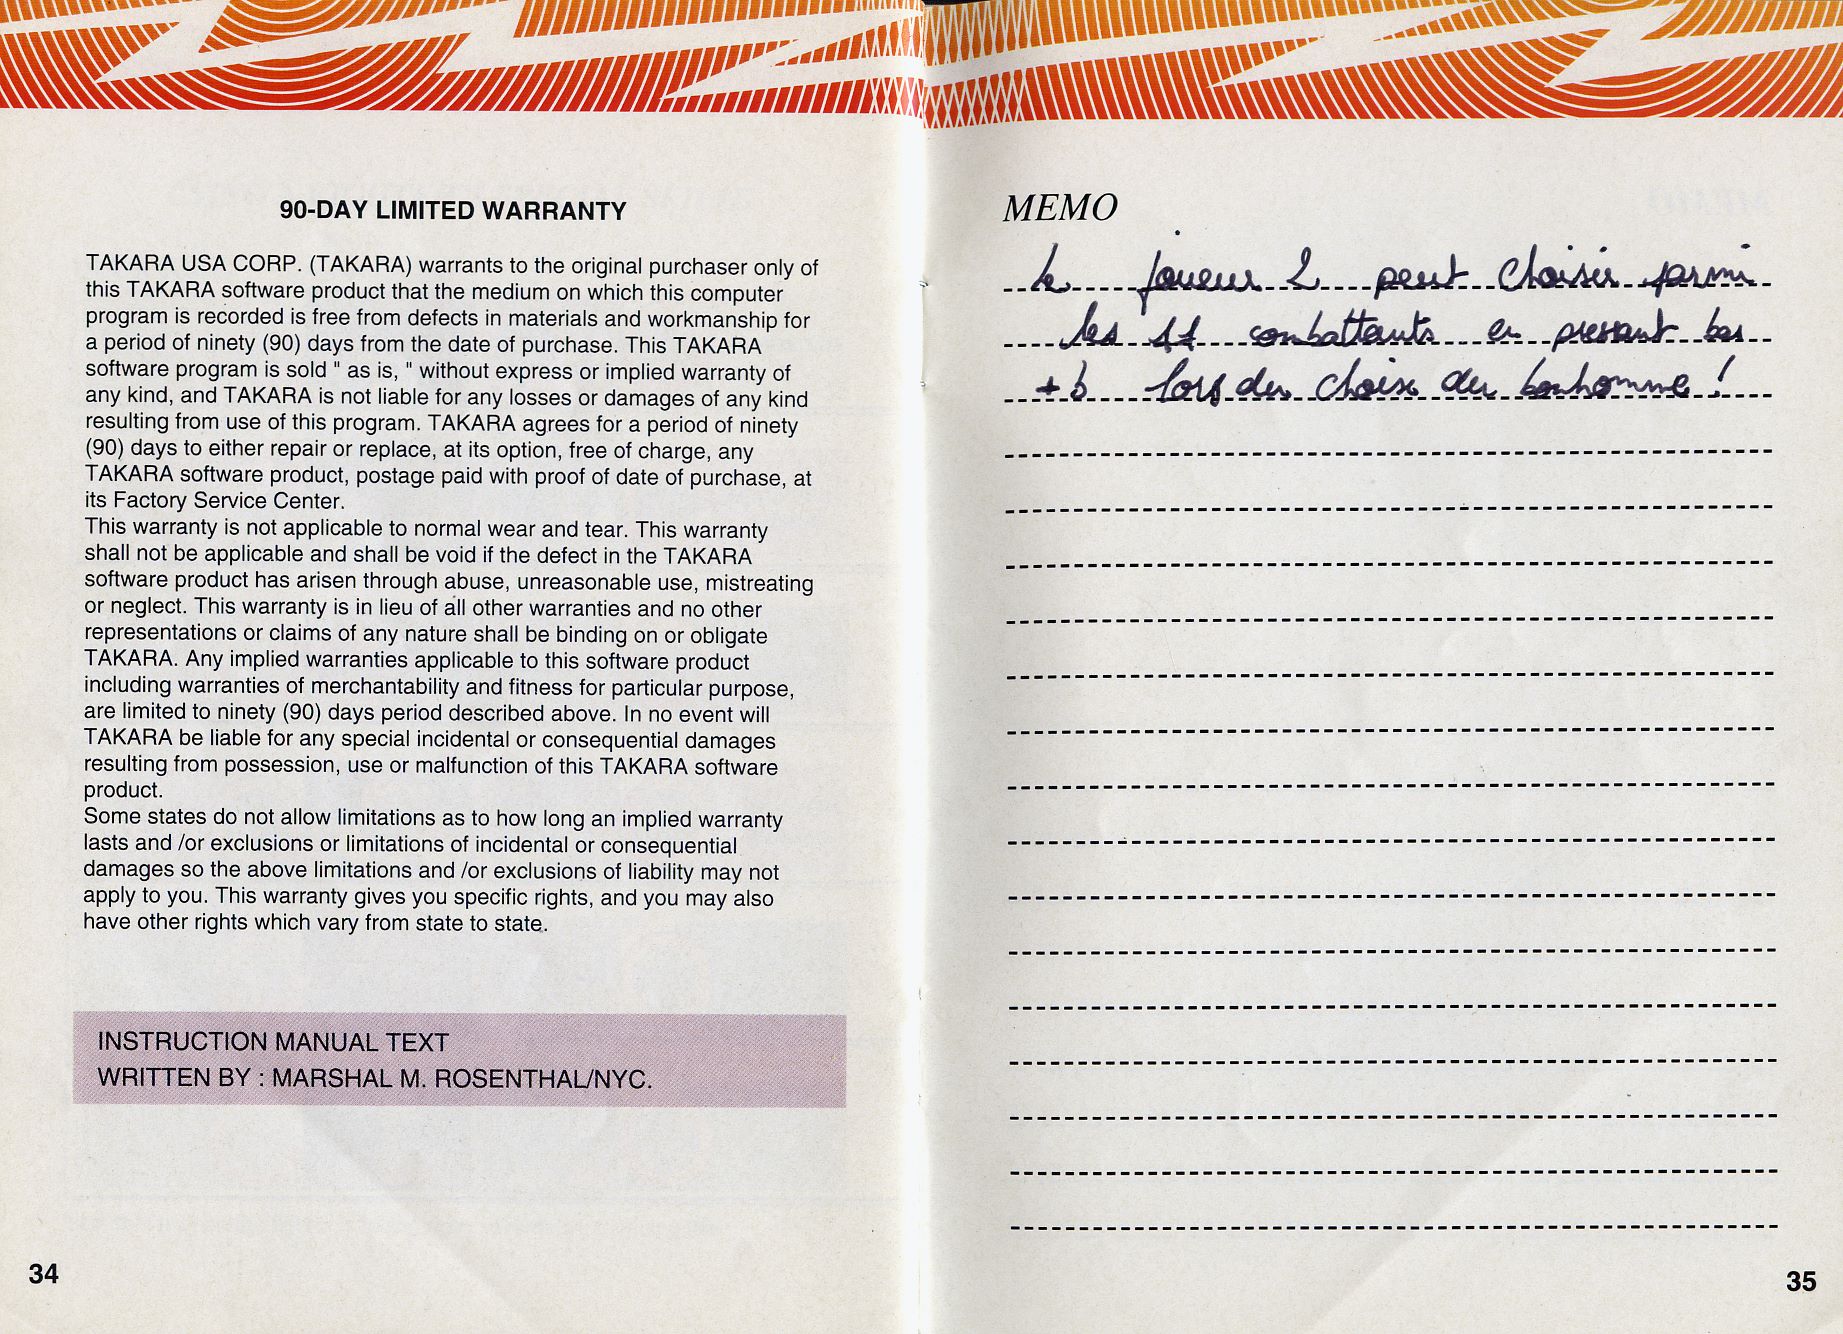 90-DAY LIMITED WARRANTY
TAKARA USA CORP. (TAKARA) warrants to the original purchaser only of
this TAKARA software product that the medium on which this computer
program is recorded is free from defects in materials and workmanship for
a period of ninety (90) days from the date of purchase. This TAKARA
software program is sold " as is, " without express or implied warranty of
any kind, and TAKARA is not liable for any losses or damages of any kind
resulting from use of this program. TAKARA agrees for a period of ninety
(90) days to either repair or replace, at its option, free of charge, any
TAKARA software product, postage paid with proof of date of purchase, at
its Factory Service Center.
This warranty is not applicable to normal wear and tear. This warranty
shall not be applicable and shall be void if the defect in the TAKARA
software product has arisen through abuse, unreasonable use, mistreating
or neglect. This warranty is in lieu of all other warranties and no other
representations or claims of any nature shall be binding on or obligate
TAKARA. Any implied warranties applicable to this software product
including warranties of merchantability and fitness for particular purpose,
are limited to ninety (90) days period described above. In no event will
TAKARA be liable for any special incidental or consequential damages
resulting from possession, use or malfunction of this TAKARA software
product.
Some states do not allow limitations as to how long an implied warranty
lasts and /or exclusions or limitations of incidental or consequential
damages so the above limitations and /or exclusions of liability may not
apply to you. This warranty gives you specific rights, and you may also
have other rights which vary from state to state.
INSTRUCTION MANUAL TEXT
WRITTEN BY : MARSHAL M. ROSENTHAL/NYC.
34
MEMO
le joueur 2 peut choisir parmi
les 11 combattants en pressant bas
+ b lors du choix du bonhomme !
35